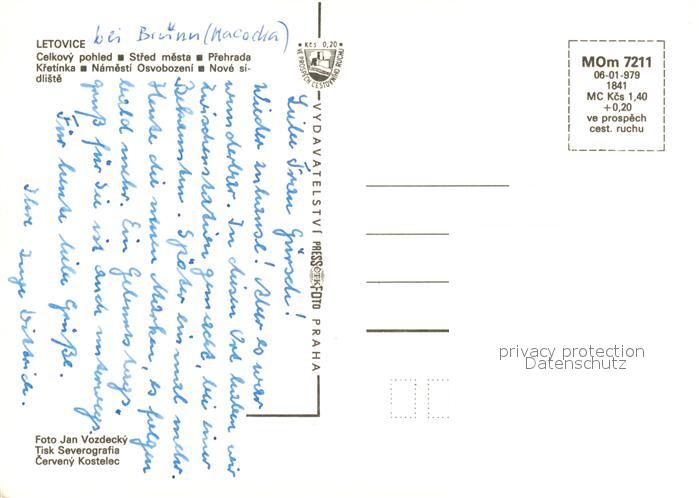 LETOVICE bei Brünn (Macocha)
Celkový pohled ■ Střed města ■ Přehrada
Křetínka ■ Náměstí Osvobození ■ Nové sí-
dliště
Kčs 0,20
VE PROSPĚCH CESTOVNÍHO RUCHU
MOm 7211
06-01-979
1841
MC Kčs 1,40
+0,20
ve prospěch
cest. ruchu
Liebe Frau Görsch!
Wieder zuhause! Aber es war
wunderbar. In diesem Ort haben wir
Zwischenstation gemacht, bei einer
Bekannten. Später einmal mehr.
Heute die neuen Marken, es folgen
bald mehr. Ein Geburtstags-
gruß für Sie ist auch unterwegs.
Für heute liebe Grüße.
Ihre Inge Dittrich.
VYDAVATELSTVÍ PRESSFOTO PRAHA
ČTK
privacy protection
Datenschutz
Foto Jan Vozdecký
Tisk Severografia
Červený Kostelec